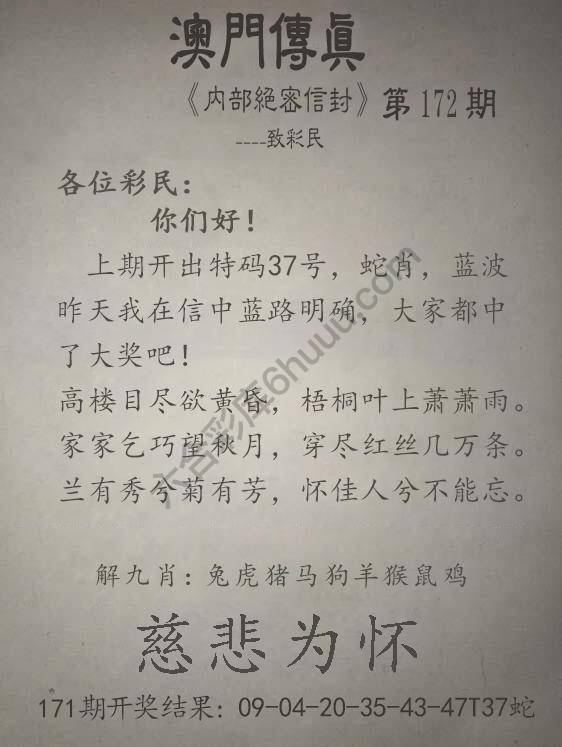 澳門傳真
《内部絕密信封》第172期
----致彩民
各位彩民：
你们好！
上期开出特码37号，蛇肖，蓝波
昨天我在信中蓝路明确，大家都中
了大奖吧！
高楼目尽欲黄昏，梧桐叶上萧萧雨。
家家乞巧望秋月，穿尽红丝几万条。
兰有秀兮菊有芳，怀佳人兮不能忘。
解九肖：兔虎猪马狗羊猴鼠鸡
慈悲为怀
171期开奖结果：09-04-20-35-43-47T37蛇
六合彩库6huuu.com